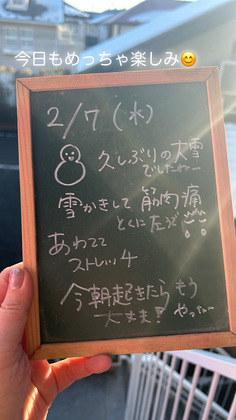 今日もめっちゃ楽しみ😊
2/7(水)
久しぶりの大雪
でしたねー
雪かきして筋肉痛
とくに左うで
あわてて
ストレッチ
今朝起きたら もう
大丈夫!やったー